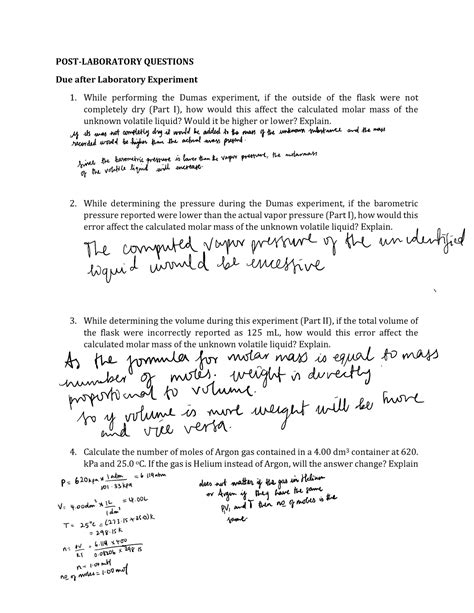 POST-LABORATORY QUESTIONS
Due after Laboratory Experiment
1. While performing the Dumas experiment, if the outside of the flask were not
completely dry (Part I), how would this affect the calculated molar mass of the
unknown volatile liquid? Would it be higher or lower? Explain.
If its was not completly dry it would be added to the mass of the unknown substance and the mass
recorded would be higher than the actual mass present.
Since the barometric pressure is lower than the vapor pressure, the molarmass
of the volatile liquid will increase.
2. While determining the pressure during the Dumas experiment, if the barometric
pressure reported were lower than the actual vapor pressure (Part I), how would this
error affect the calculated molar mass of the unknown volatile liquid? Explain.
The computed vapor pressure of the unidentified
liquid would be excessive
3. While determining the volume during this experiment (Part II), if the total volume of
the flask were incorrectly reported as 125 mL, how would this error affect the
calculated molar mass of the unknown volatile liquid? Explain.
As the formula for molar mass is equal to mass
number of moles. weight is directly
proportional to volume.
so if volume is more weight will be more
and vice versa.
4. Calculate the number of moles of Argon gas contained in a 4.00 dm³ container at 620.
kPa and 25.0 ºC. If the gas is Helium instead of Argon, will the answer change? Explain
P = 620kpa x 1 atm = 6.119atm
101.33kpa
V = 4.00dm³ x 1L = 4.00L
1dm³
T = 25°c = (273.15+25.0)k
= 298.15k
n = PV = 6.119 x 4.00
RT 0.08206 x 298.15
n = 1.00 mol
no of moles = 1.00 mol
does not matter if the gas in Helium
or Argon if they have the same
PV, and T then no of moles is the
same.